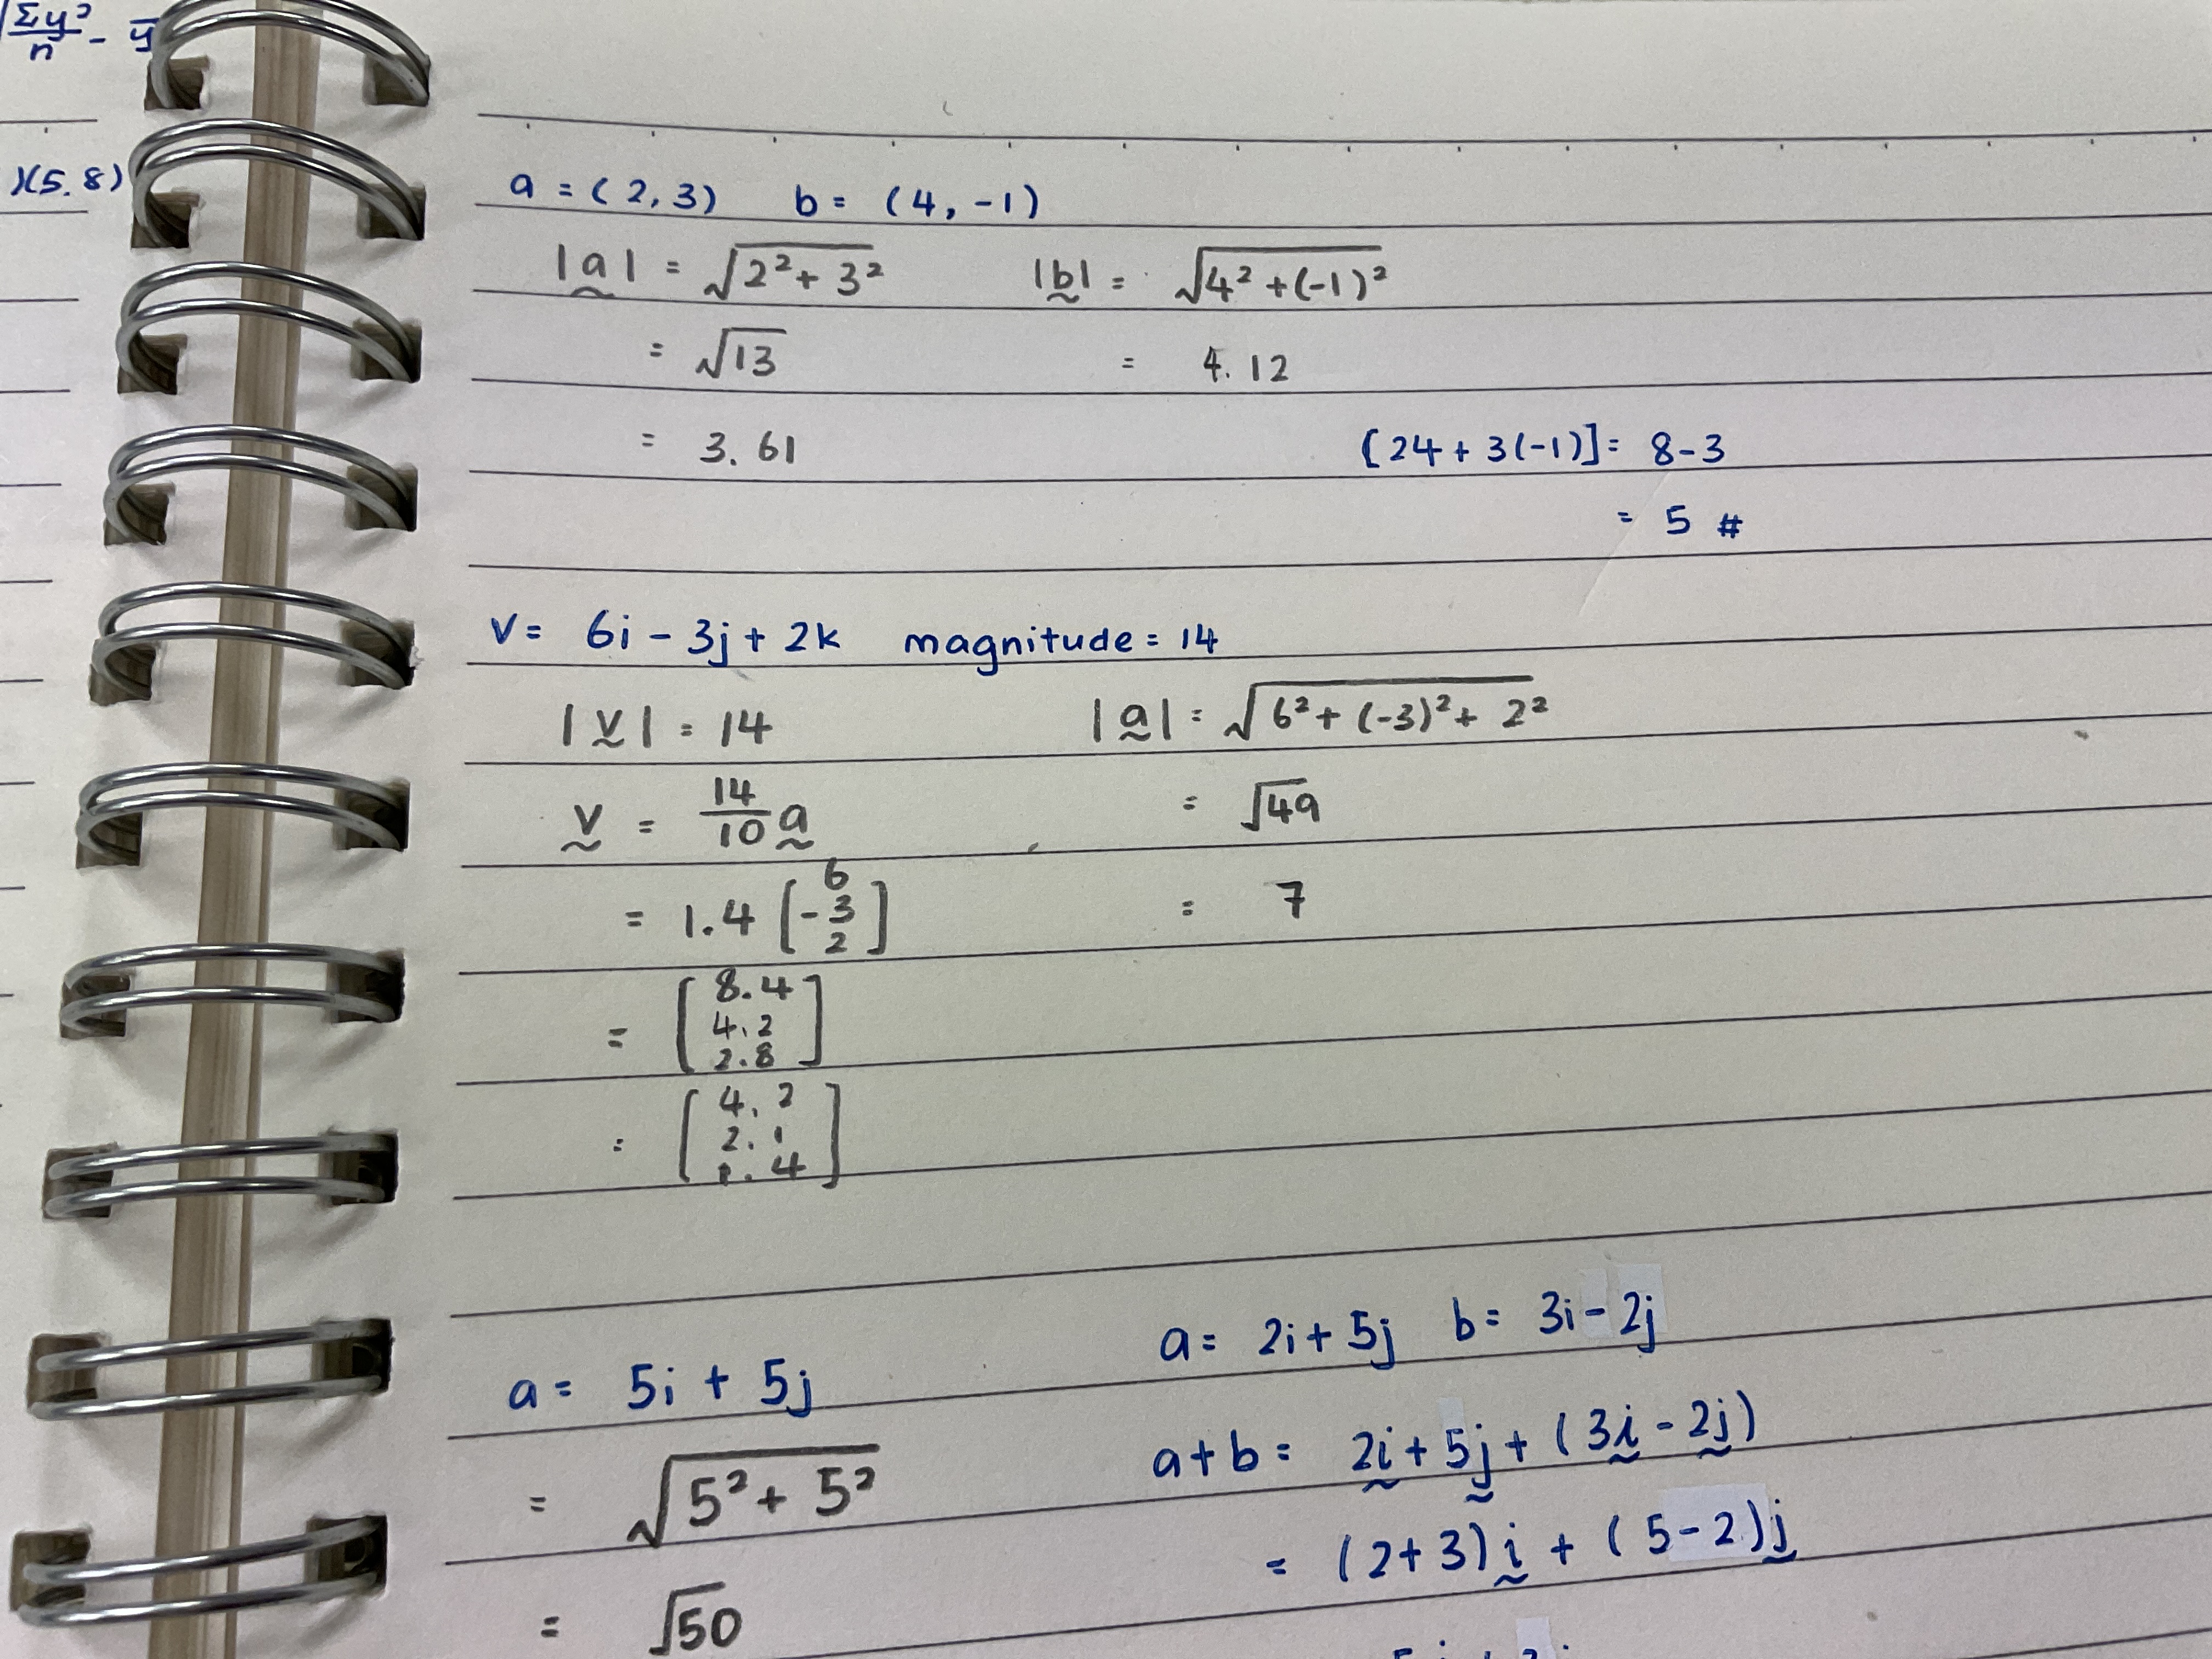 Σy²/n - ȳ
)(5.8)
a = (2, 3) b = (4, -1)
|a| = √2² + 3² |b| = √4² + (-1)²
= √13 = 4.12
= 3.61 [24 + 3(-1)] = 8 - 3
= 5 #
v = 6i - 3j + 2k magnitude = 14
|v| = 14 |a| = √6² + (-3)² + 2²
v = 14/10 a = √49
= 1.4 [6 -3 2] = 7
= [8.4 4.2 2.8]
= [4.2 2.1 1.4]
a = 2i + 5j b = 3i - 2j
a = 5i + 5j
a + b = 2i + 5j + (3i - 2j)
= √5² + 5²
= (2 + 3)i + (5 - 2)j
= √50